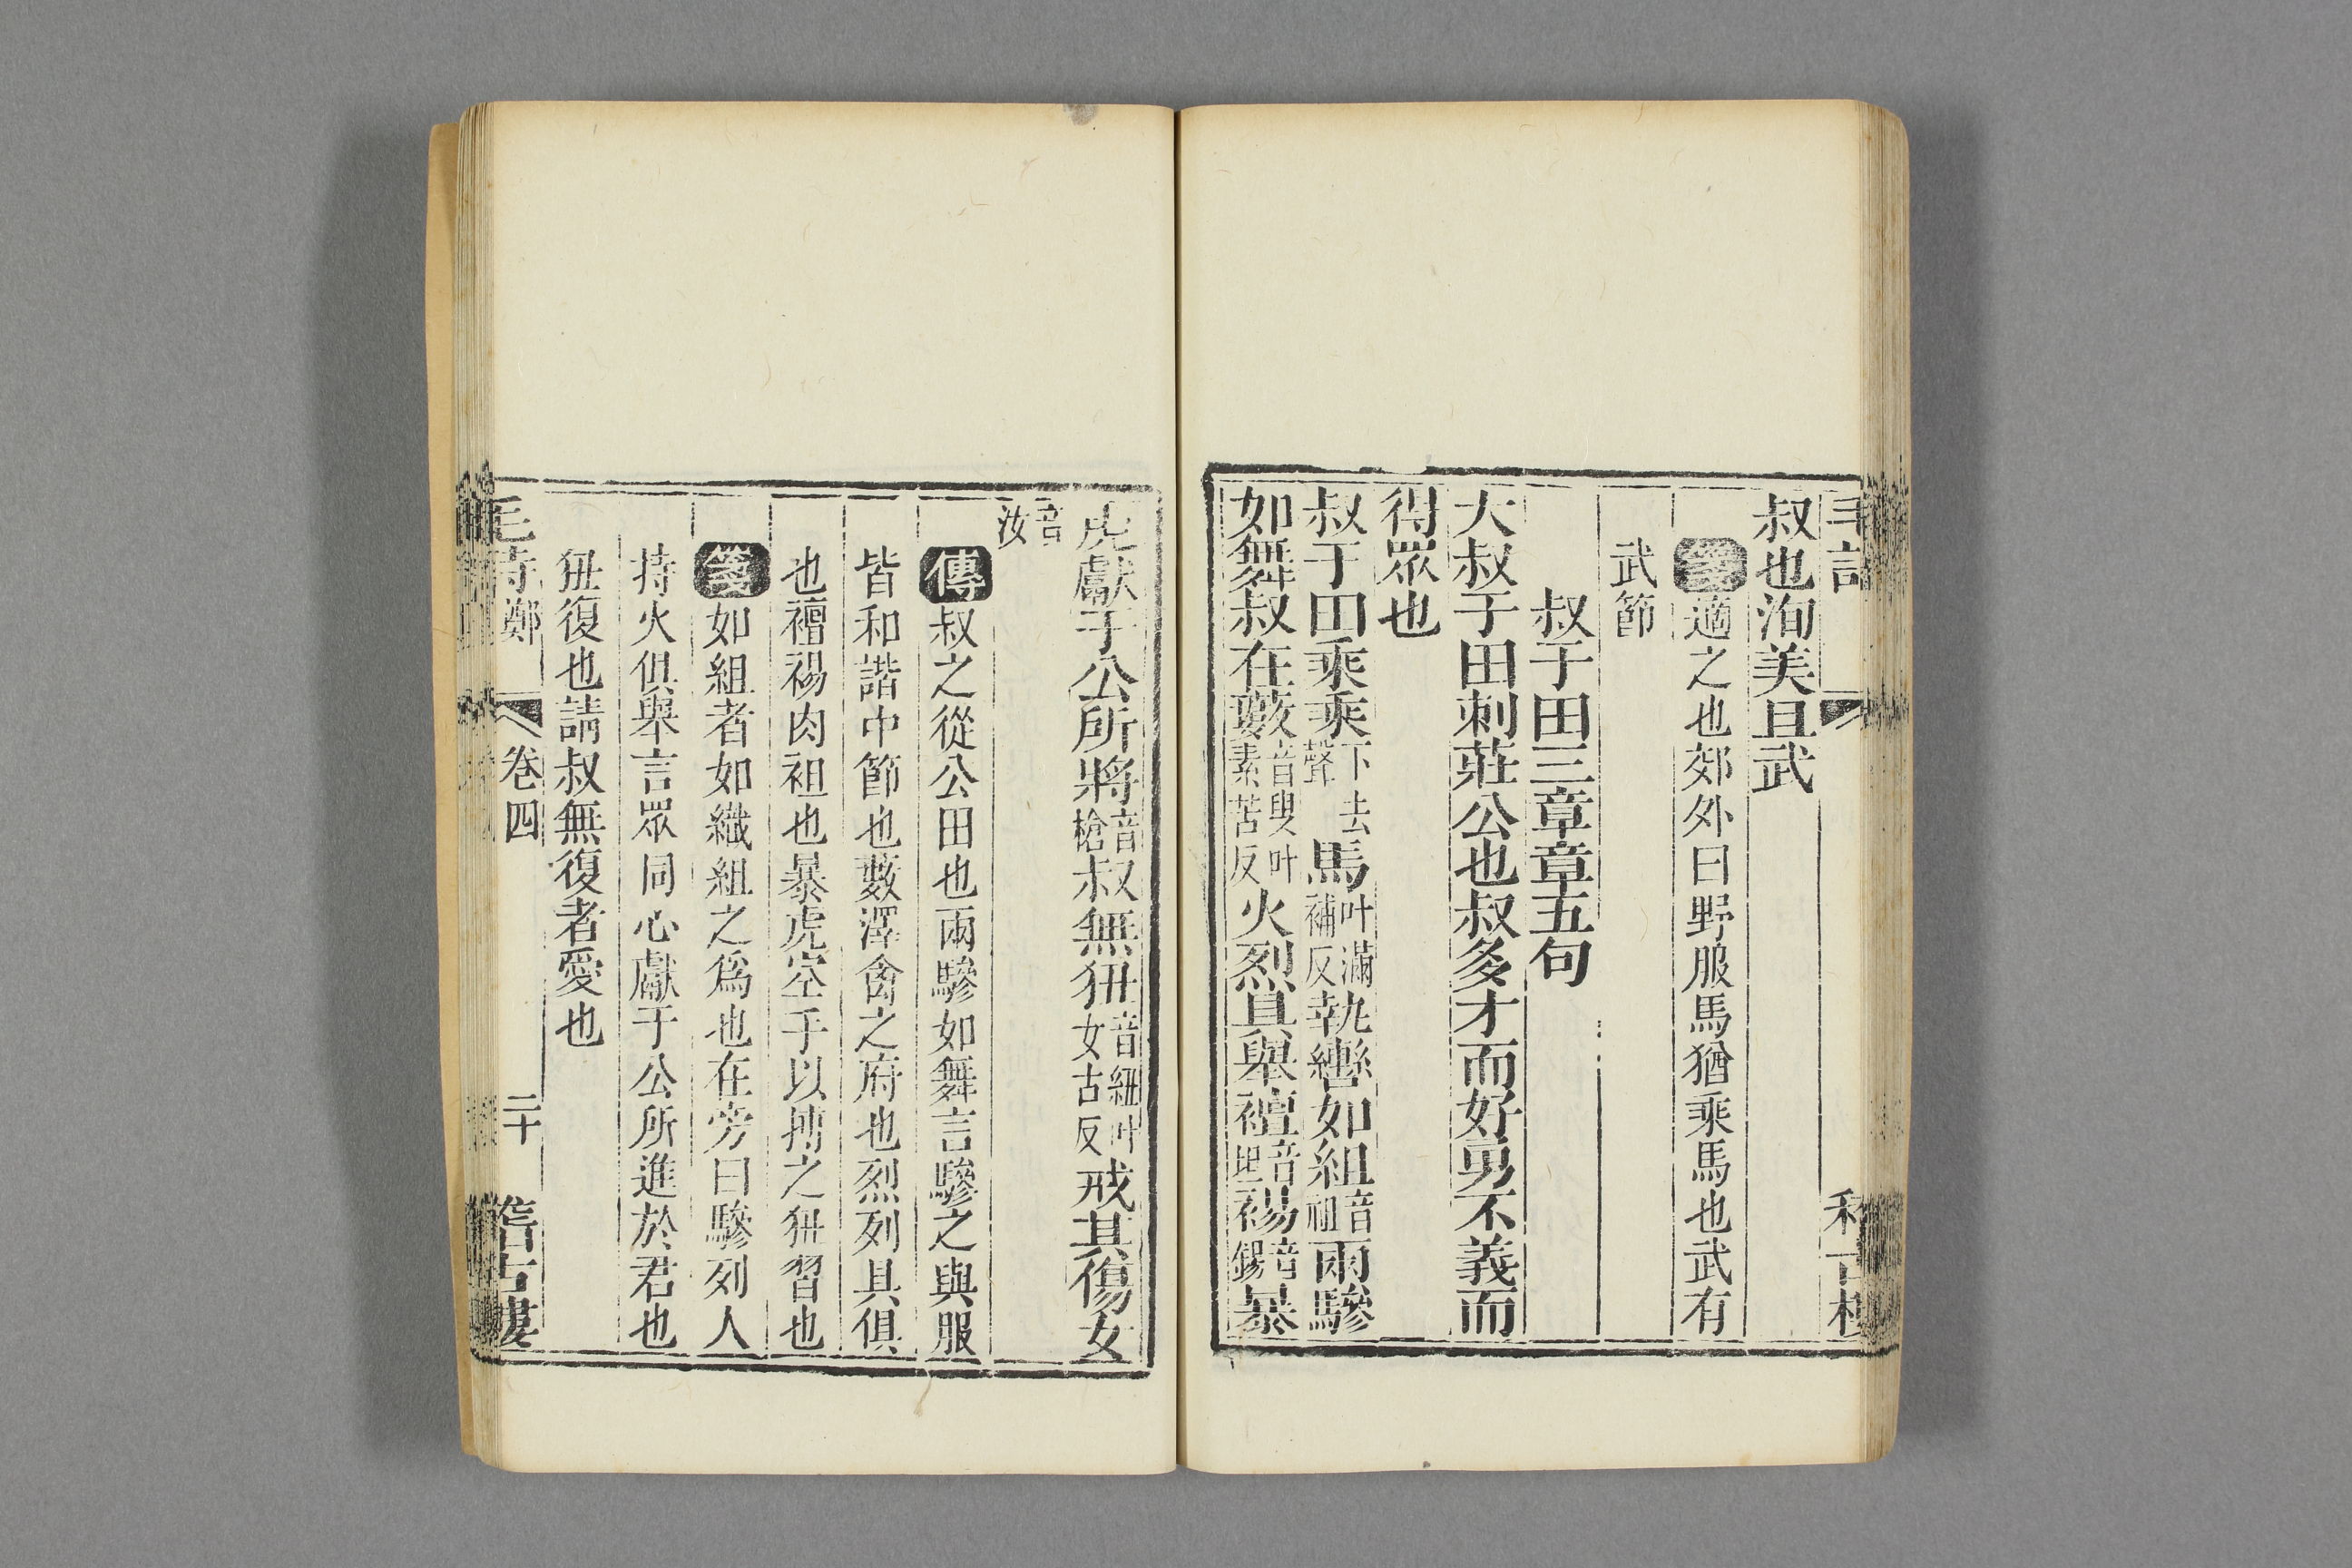 叔也洵美且武
箋適之也郊外曰野服馬猶乘馬也武有
武節
叔于田三章章五句
大叔于田刺莊公也叔多才而好勇不義而
得眾也
叔于田乘乘下去聲馬叶滿補反執轡如組音祖兩驂
如舞叔在藪音叟叶素苦反火烈具舉襢音坦裼音錫暴
虎獻于公所將音槍叔無狃音紐叶女古反戒其傷女
音汝
傳叔之從公田也兩驂如舞言驂之與服
皆和諧中節也藪澤禽之府也烈列具俱
也襢裼肉袒也暴虎空手以搏之狃習也
箋如組者如織組之爲也在旁曰驂列人
持火俱舉言眾同心獻于公所進於君也
狃復也請叔無復者愛也
毛詩鄭 卷四 二十 稽古樓